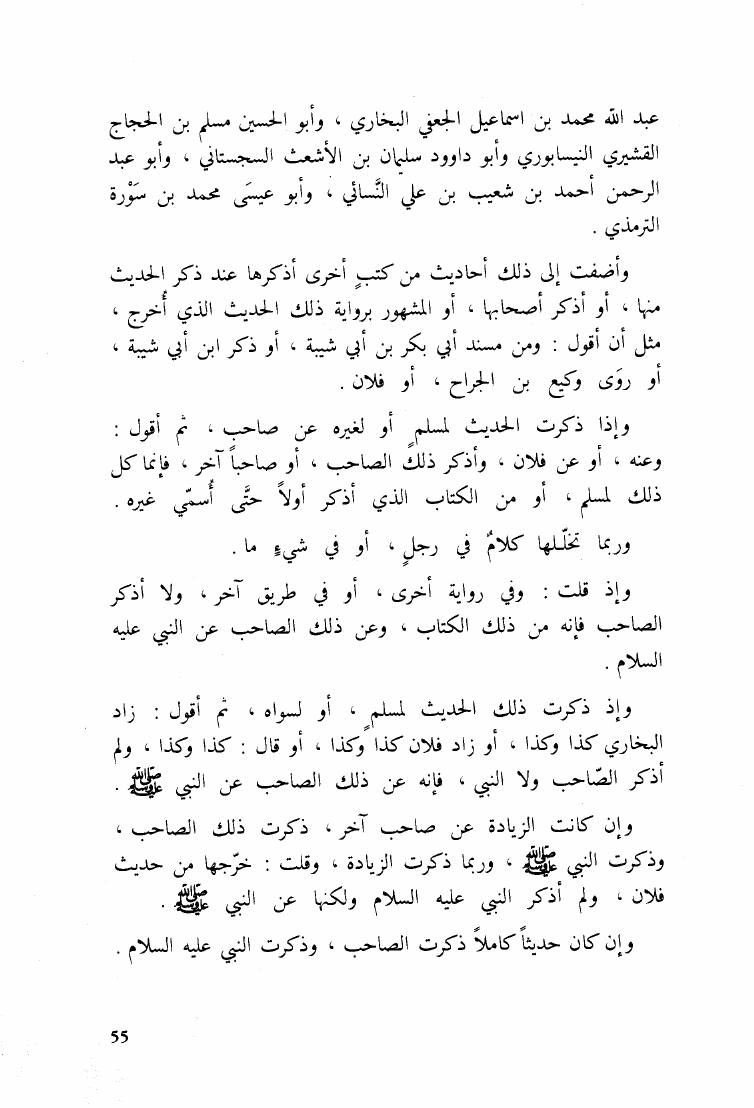 عبد الله محمد بن اسماعيل الجعفي البخاري ، وأبو الحسين مسلم بن الحجاج
القشيري النيسابوري وأبو داوود سليمان بن الأشعث السجستاني ، وأبو عبد
الرحمن أحمد بن شعيب بن علي النَّسائي ، وأبو عيسَى محمد بن سَوْرة
الترمذي .
وأضفت إلى ذلك أحاديث من كتبٍ أخرى أذكرها عند ذكر الحديث
منها ، أو أذكر أصحابها ، أو المشهور برواية ذلك الحديث الذي أُخرج ،
مثل أن أقول : ومن مسند أبي بكر بن أبي شيبة ، أو ذكر ابن أبي شيبة ،
أو روَى وكيع بن الجراح ، أو فلان .
وإذا ذكرت الحديث لمسلمٍ أو لغيره عن صاحب ، ثم أقول :
وعنه ، أو عن فلان ، وأذكر ذلك الصاحب ، أو صاحباً آخر ، فإنما كل
ذلك لمسلم ، أو من الكتاب الذي أذكر أولاً حتَّى أُسمّي غيره .
وربما تخلّلها كلامٌ في رجلٍ ، أو في شيءٍ ما .
وإذ قلت : وفي رواية أخرى ، أو في طريق آخر ، ولا أذكر
الصاحب فإنه من ذلك الكتاب ، وعن ذلك الصاحب عن النبي عليه
السلام .
وإذ ذكرت ذلك الحديث لمسلمٍ ، أو لسواه ، ثم أقول : زاد
البخاري كذا وكذا ، أو زاد فلان كذا وكذا ، أو قال : كذا وكذا ، ولم
أذكر الصّاحب ولا النبي ، فإنه عن ذلك الصاحب عن النبي ﷺ .
وإن كانت الزيادة عن صاحب آخر ، ذكرت ذلك الصاحب ،
وذكرت النبي ﷺ ، وربما ذكرت الزيادة ، وقلت : خرّجها من حديث
فلان ، ولم أذكر النبي عليه السلام ولكنها عن النبي ﷺ .
وإن كان حديثاً كاملاً ذكرت الصاحب ، وذكرت النبي عليه السلام .
55